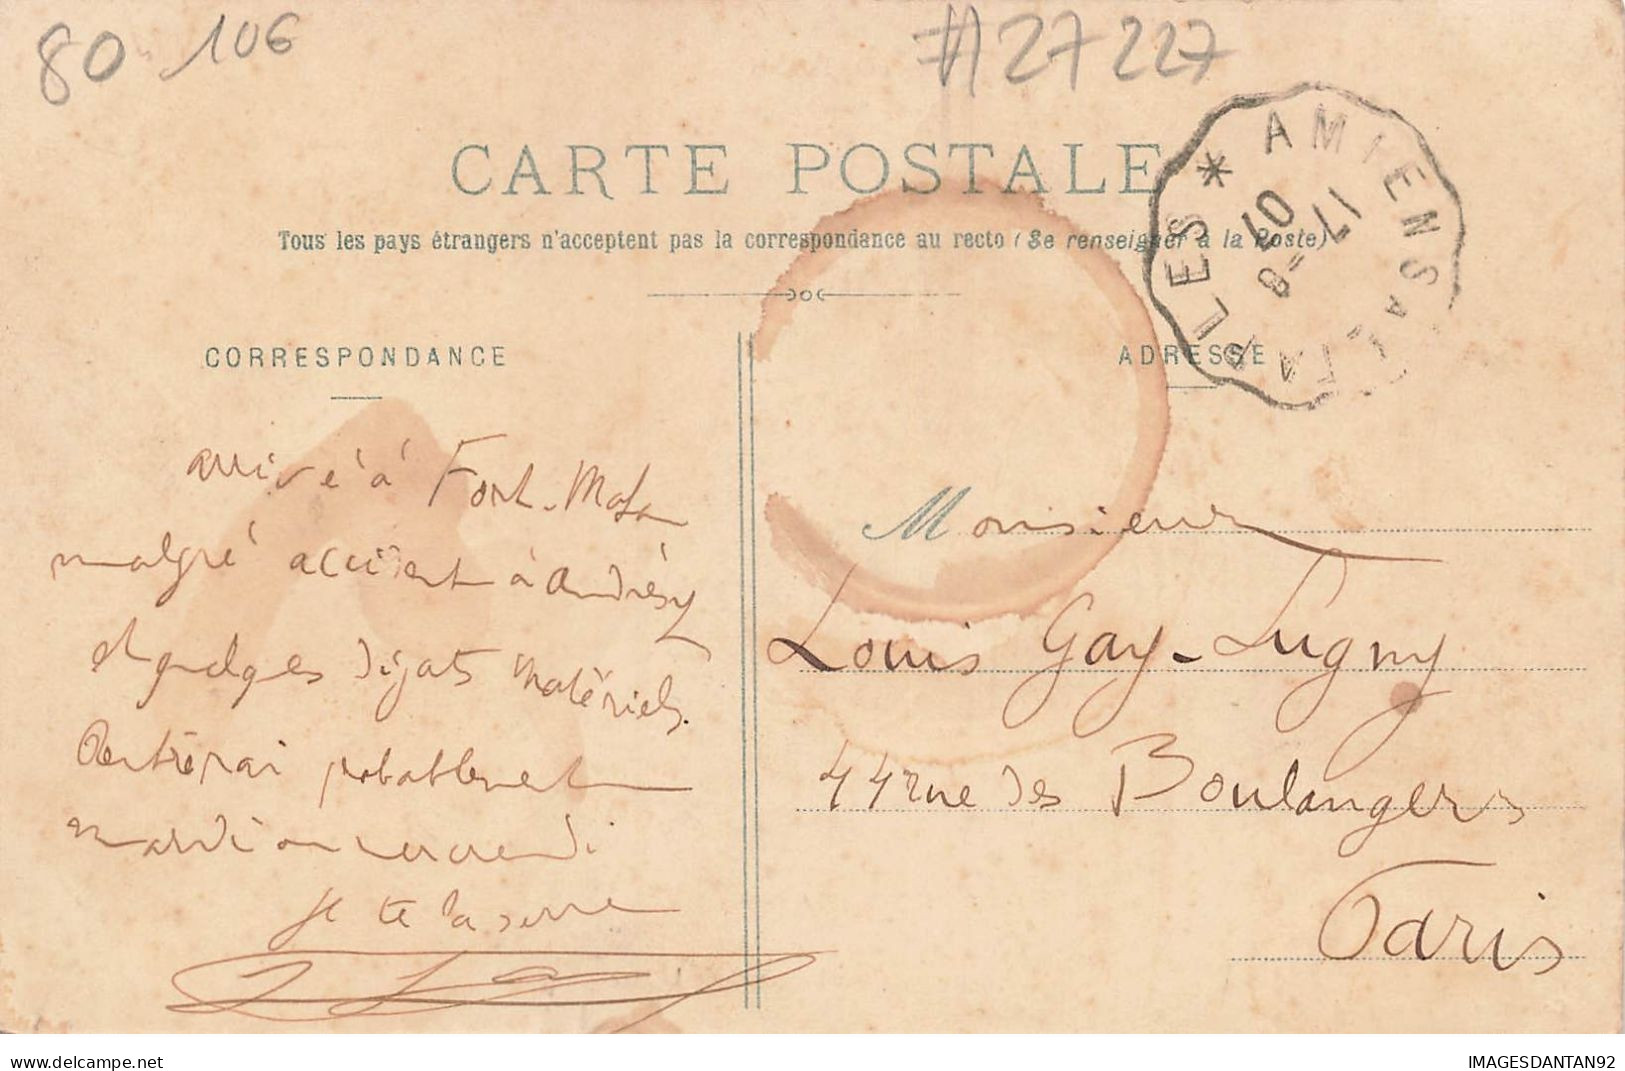 80 106
#27227
CARTE POSTALE
Tous les pays étrangers n'acceptent pas la correspondance au recto (Se renseigner à la Poste)
AMIENS A ETAPLES *
17 -8 07
CORRESPONDANCE
ADRESSE
arrivé à Fort-Mahon
malgré accident à Andrésy
et quelques dégats matériels.
Rentrerai probablement
mardi ou mercredi
Je te la serre
Monsieur
Louis Gay-Lugny
44 rue des Boulangers
Paris
www.delcampe.net
IMAGESDANTAN92